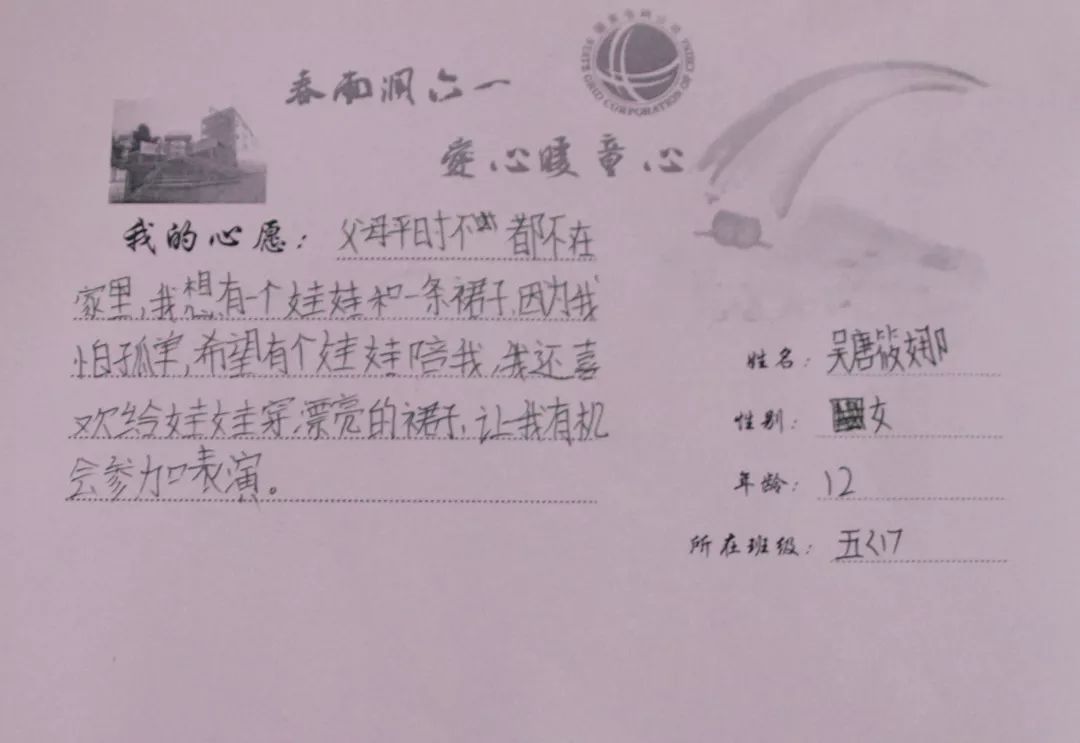 春雨润六一
STATE GRID CORPORATION OF CHINA
爱心暖童心
我的心愿：父母平时不都不在
家里,我想有一个娃娃和一条裙子,因为我
怕孤单,希望有个娃娃陪我,我还喜
欢给娃娃穿漂亮的裙子,让我有机
会参加表演。
姓名：吴唐筱娜
性别：女
年龄：12
所在班级：五<1>